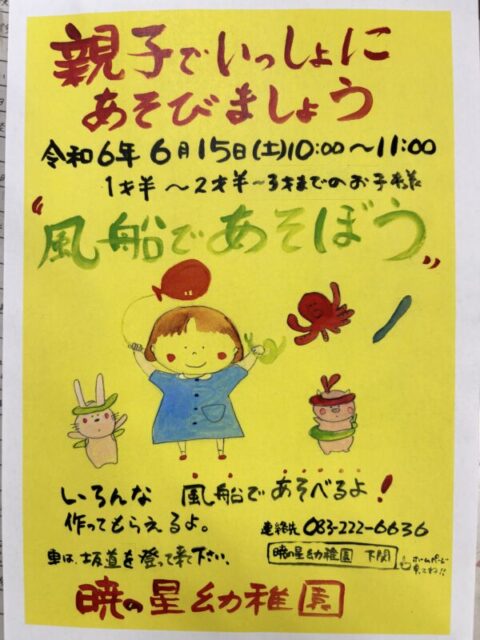 親子でいっしょに
あそびましょう
令和6年 6月15日(土)10:00～11:00
1才半～2才半～3才までのお子様
“風船であそぼう”
いろんな 風船であそべるよ!
作ってもらえるよ。
連絡先 083-222-6636
車は、坂道を登って来て下さい。
暁の星幼稚園 下関
ホームページ
見てね!!
暁の星幼稚園